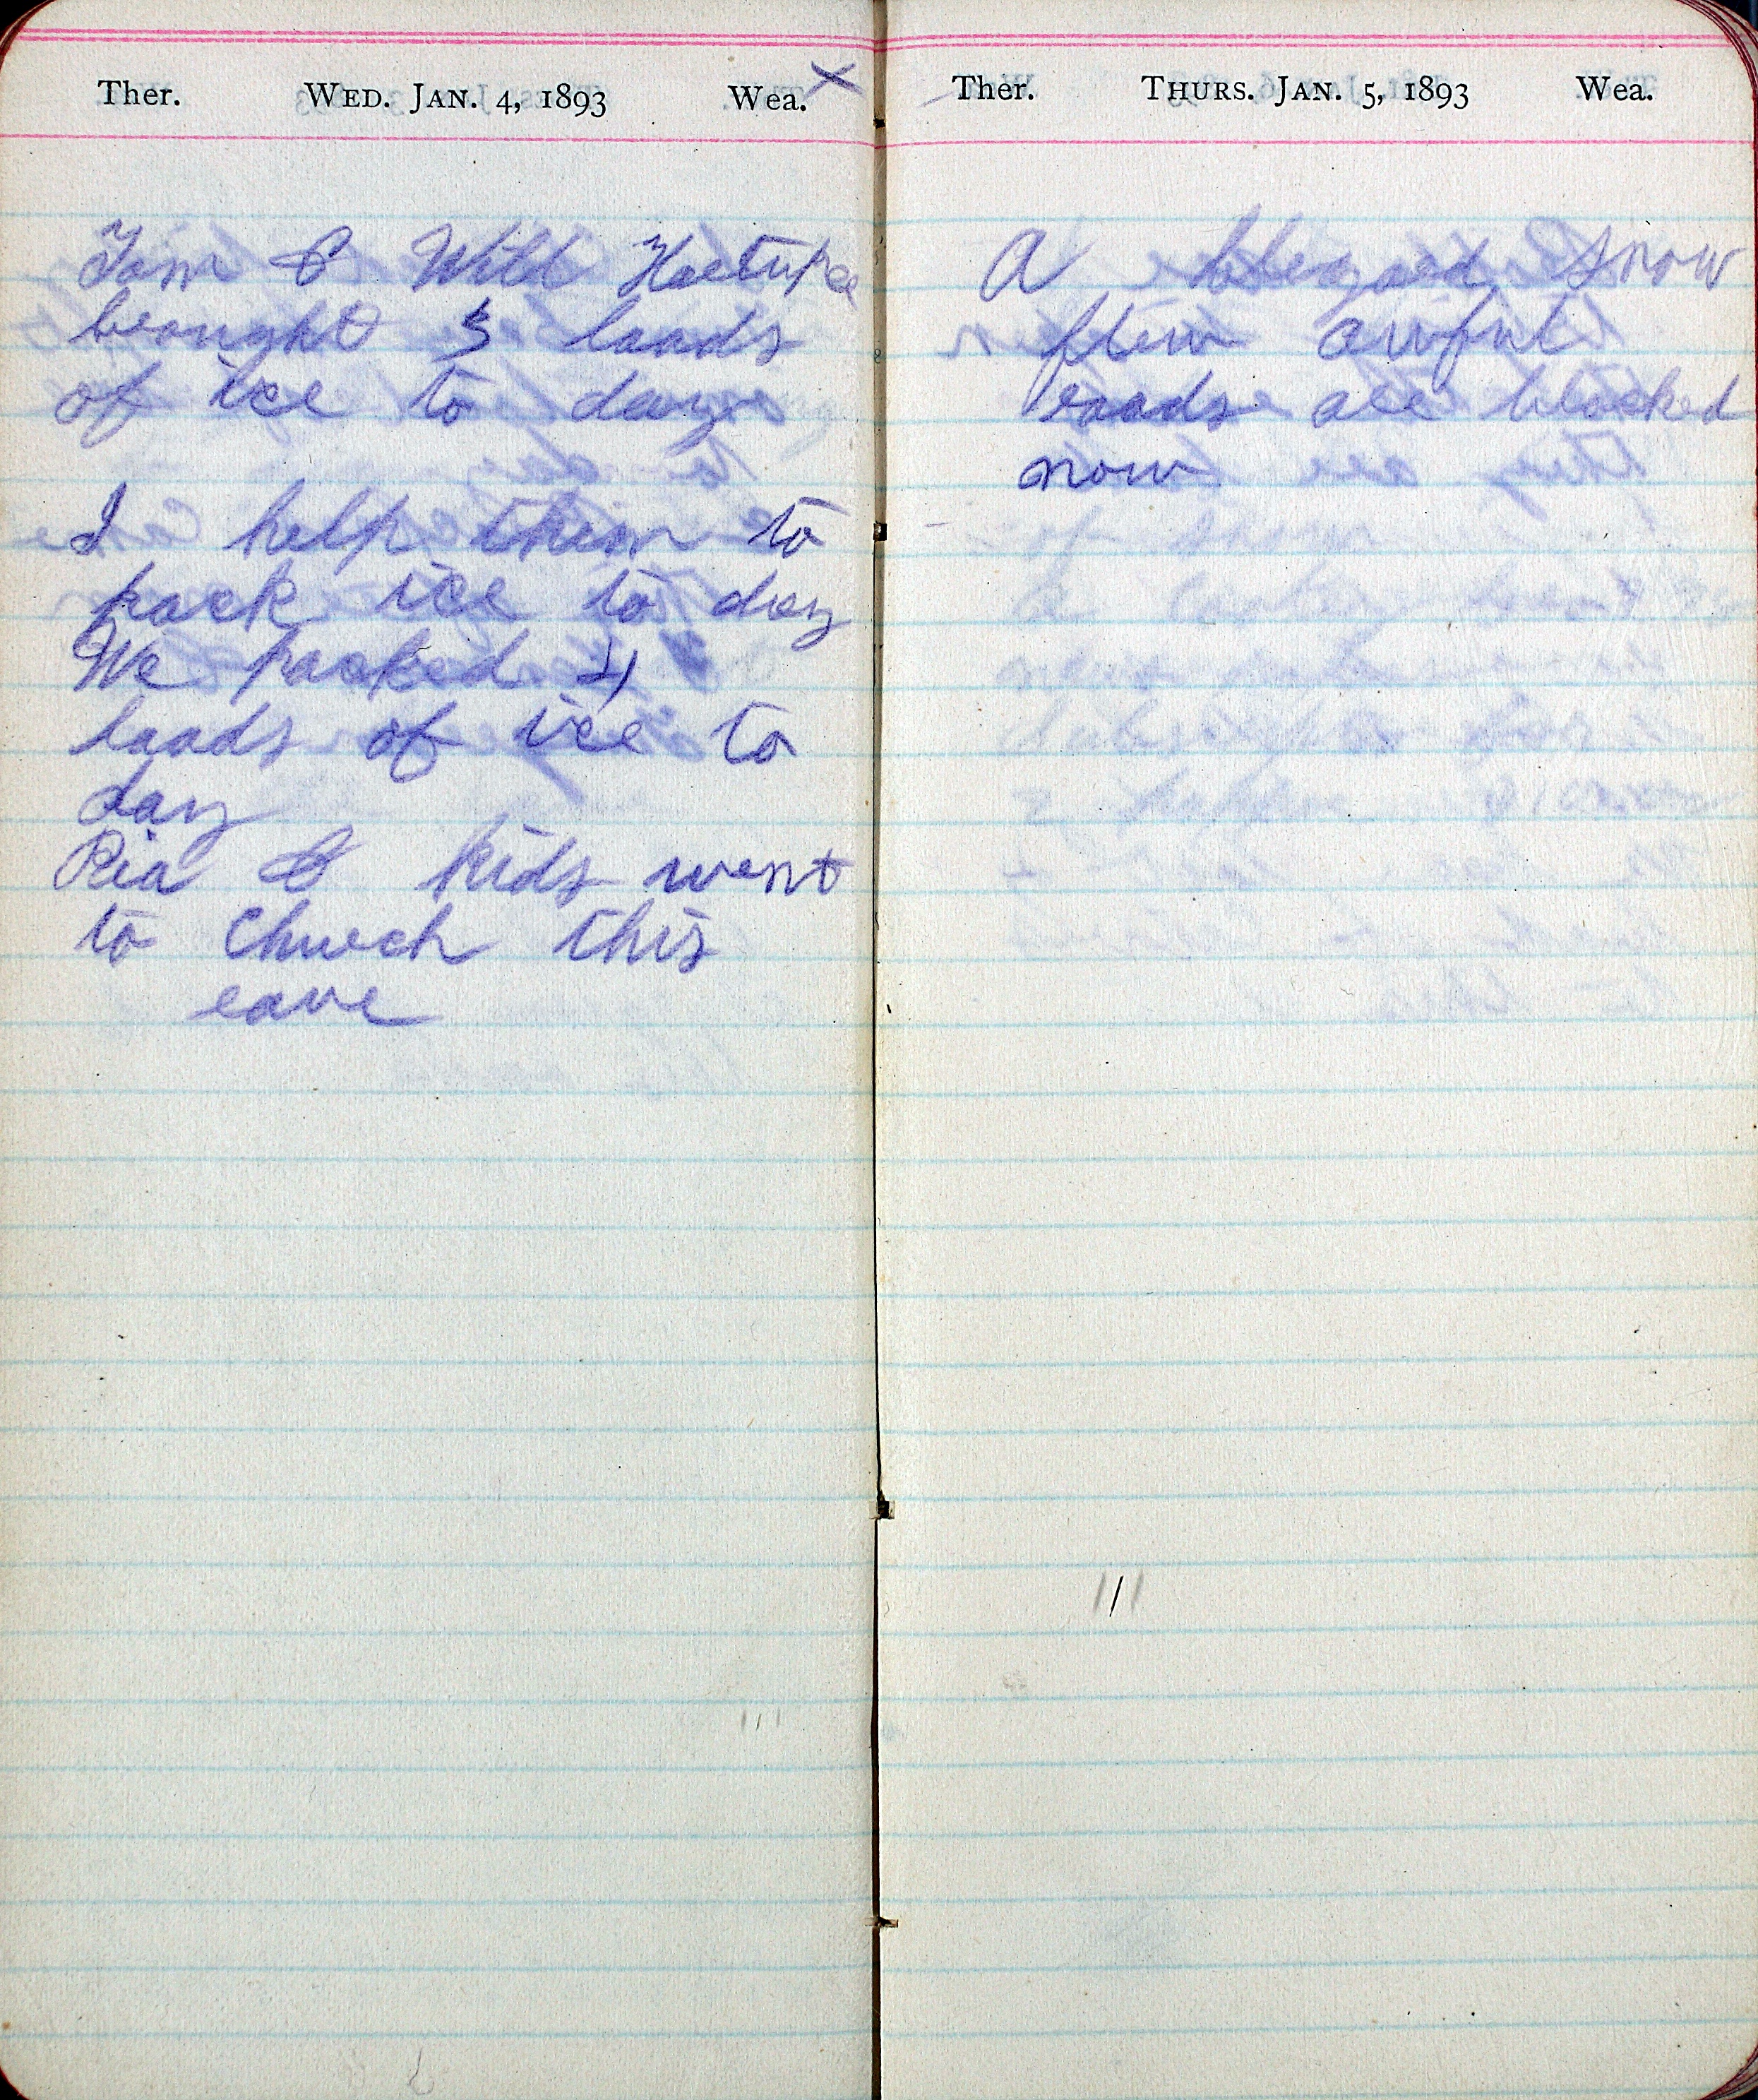 Ther. WED. JAN. 4, 1893 Wea.
Tom & Will
brought loads
of ice to day
I help them to
pack ice to day
We packed 4
loads of ice to
day
Ria & kids went
to Church this
eave
Ther. THURS. JAN. 5, 1893 Wea.
A blezard snow
flew awful
roads are blocked
now